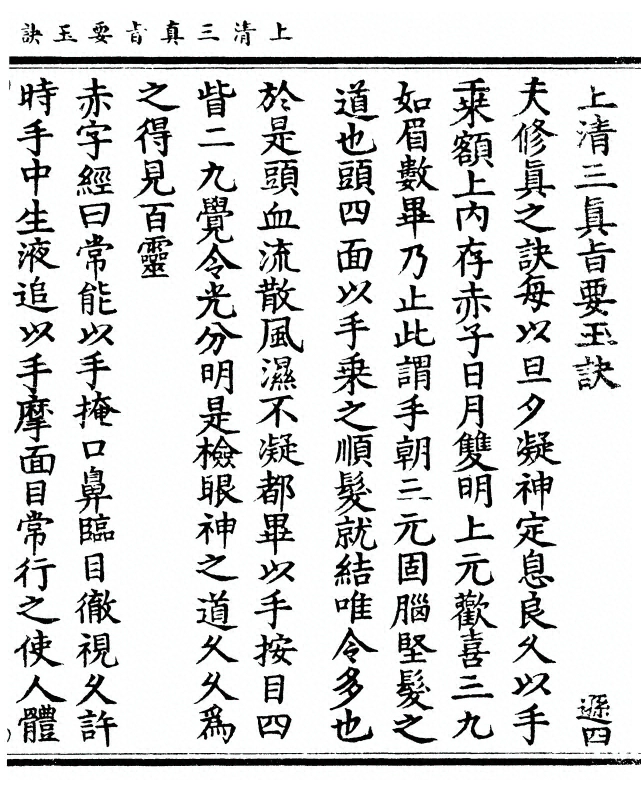 上清三真旨要玉訣
上清三眞旨要玉訣
遜四
夫修眞之訣每以旦夕凝神定息良久以手
乗額上内存赤子日月雙明上元歡喜三九
如眉數畢乃止此謂手朝三元固腦堅髮之
道也頭四面以手乗之順髮就結唯令多也
於是頭血流散風濕不凝都畢以手按目四
眥二九覺令光分明是檢眼神之道久久爲
之得見百靈
赤字經曰常能以手掩口鼻臨目徹視久許
時手中生液追以手摩面目常行之使人體